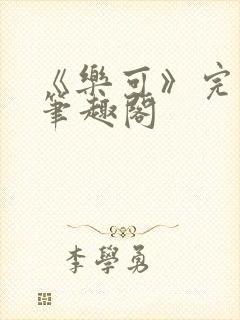 《樂可》完
筆趣閣
李學勇